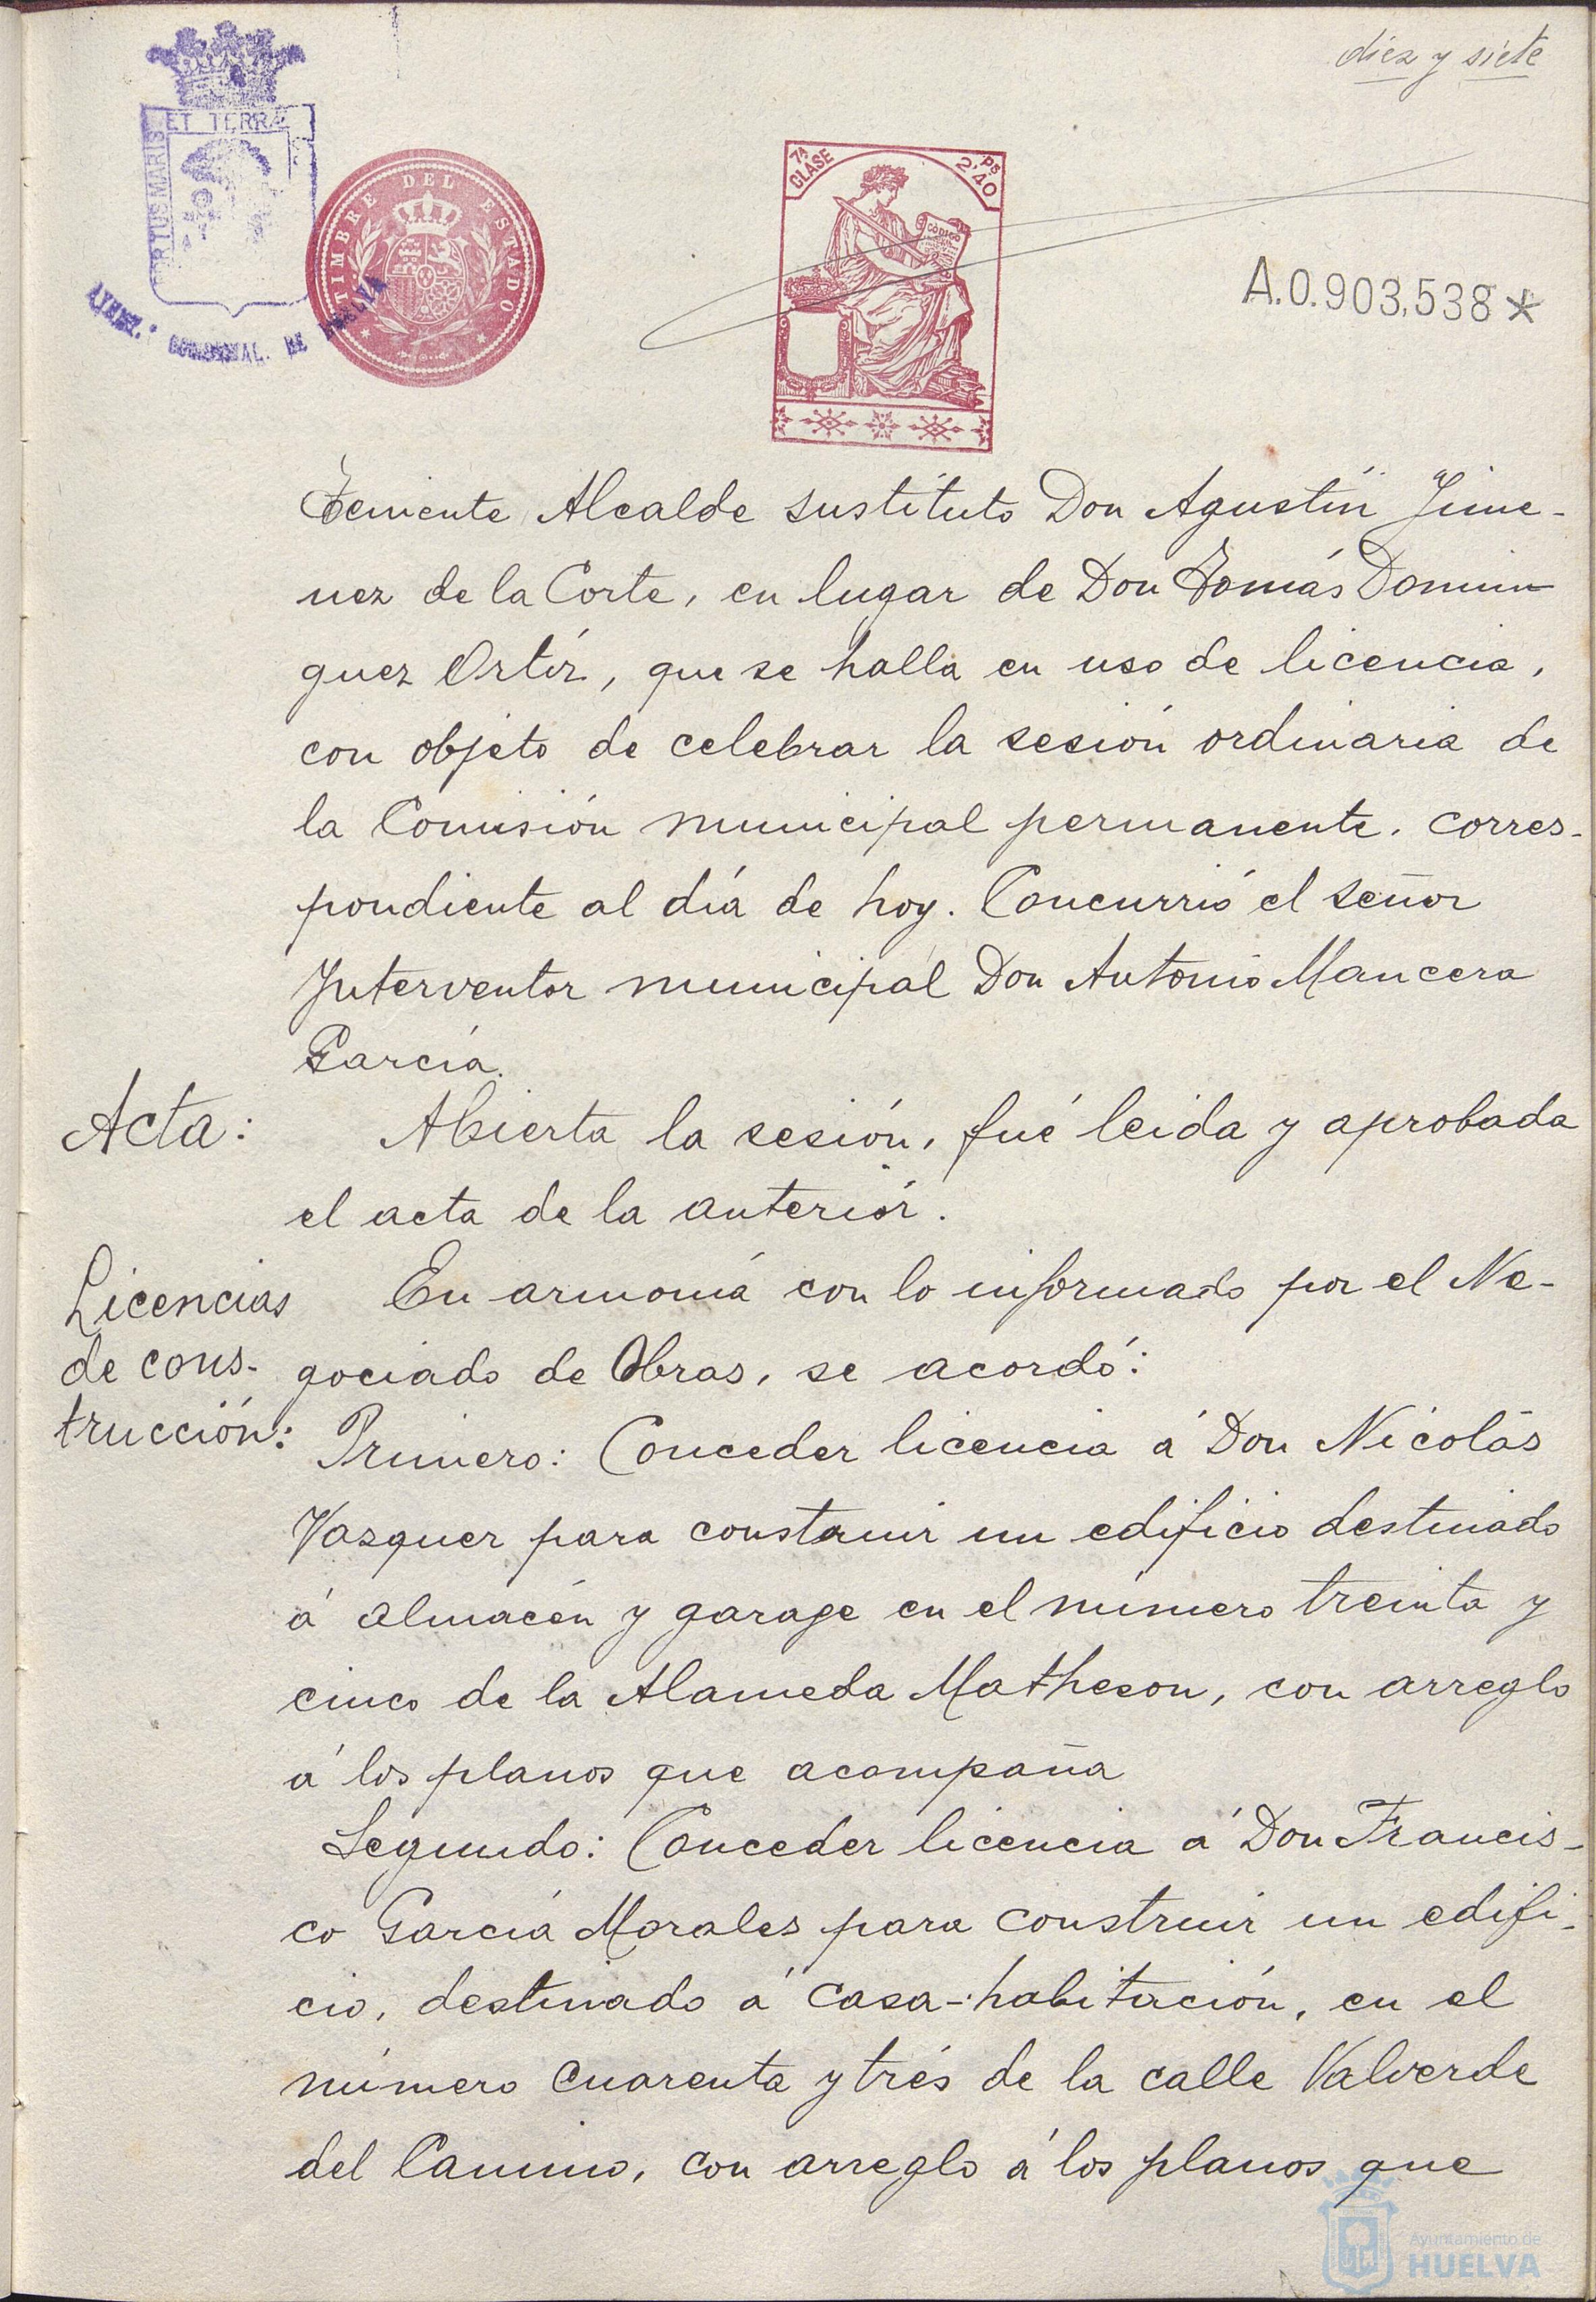 diez y siete
ET TERRÆ
PORTUS MARIS
TIMBRE DEL ESTADO
7ª CLASE
2'40 PS
CODIGO
A.0.903,538*
DE HUELVA
Teniente Alcalde sustituto Don Agustín Jime-
nez de la Corte, en lugar de Don Tomás Domin
guez Ortíz, que se halla en uso de licencia,
con objeto de celebrar la sesión ordinaria de
la Comisión municipal permanente, corres-
pondiente al día de hoy. Concurrió el señor
Interventor municipal Don Antonio Mancera
García.
Acta: Abierta la sesión, fué leida y aprobada
el acta de la anteriór.
Licencias En armonía con lo informado por el Ne-
de cons- gociado de Obras, se acordó:
trucción: Primero: Conceder licencia á Don Nicolás
Vazquez para construir un edificio destinado
á almacén y garage en el número treinta y
cinco de la Alameda Matheson, con arreglo
á los planos que acompaña
Segundo: Conceder licencia á Don Francis-
co García Morales para construir un edifi-
cio, destinado á casa-habitación, en el
número cuarenta y trés de la calle Valverde
del Camino, con arreglo á los planos que
Ayuntamiento de
HUELVA